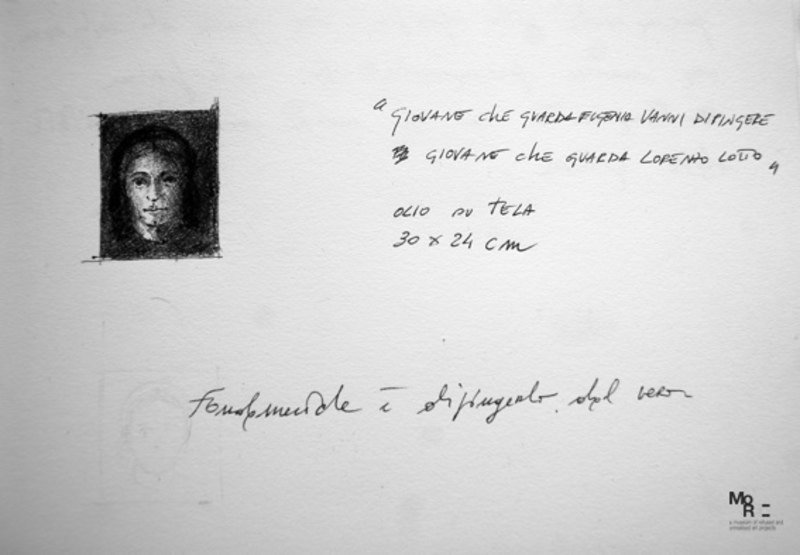 "GIOVANE che GUARDA EUGENIA VANNI DIPINGERE
GIOVANE che GUARDA LORENZO LOTTO"
OLIO SU TELA
30 x 24 cm
Fondamentale è dipingerlo dal vero
MoRE
a museum of refused and
unrealised art projects